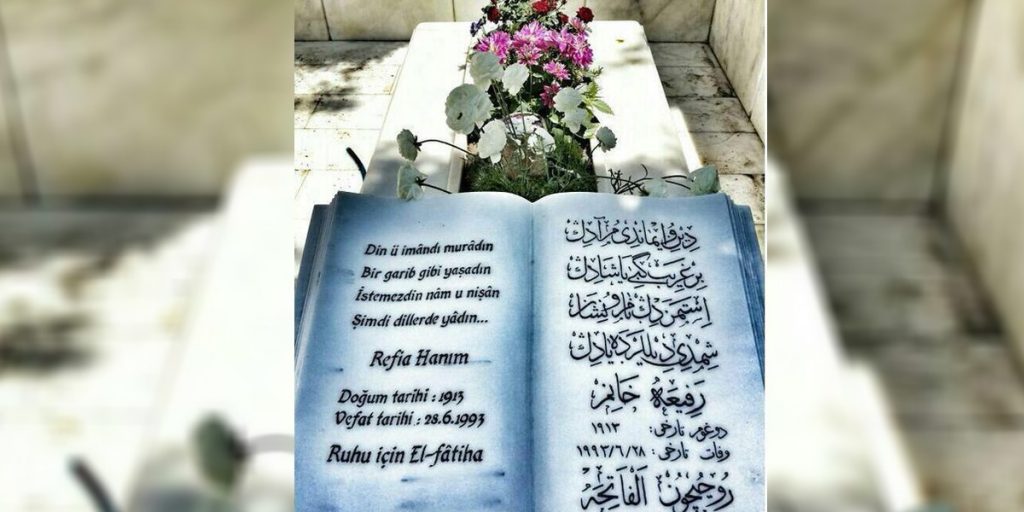 Din ü imândı murâdın
Bir garib gibi yaşadın
İstemezdin nâm u nişân
Şimdi dillerde yâdın...
Refia Hanım
Doğum tarihi : 1913
Vefat tarihi : 28.6.1993
Ruhu için El-fâtiha
دين و ايماندى مرادڭ
بر غريب گبى ياشادڭ
ايستمزدڭ نام و نشان
شمدى ديللرده يادڭ
رفيعه خانم
دوغوم تاريخى : ١٩١٣
وفات تاريخى : ١٩٩٣/٦/٢٨
روحيچون الفاتحه